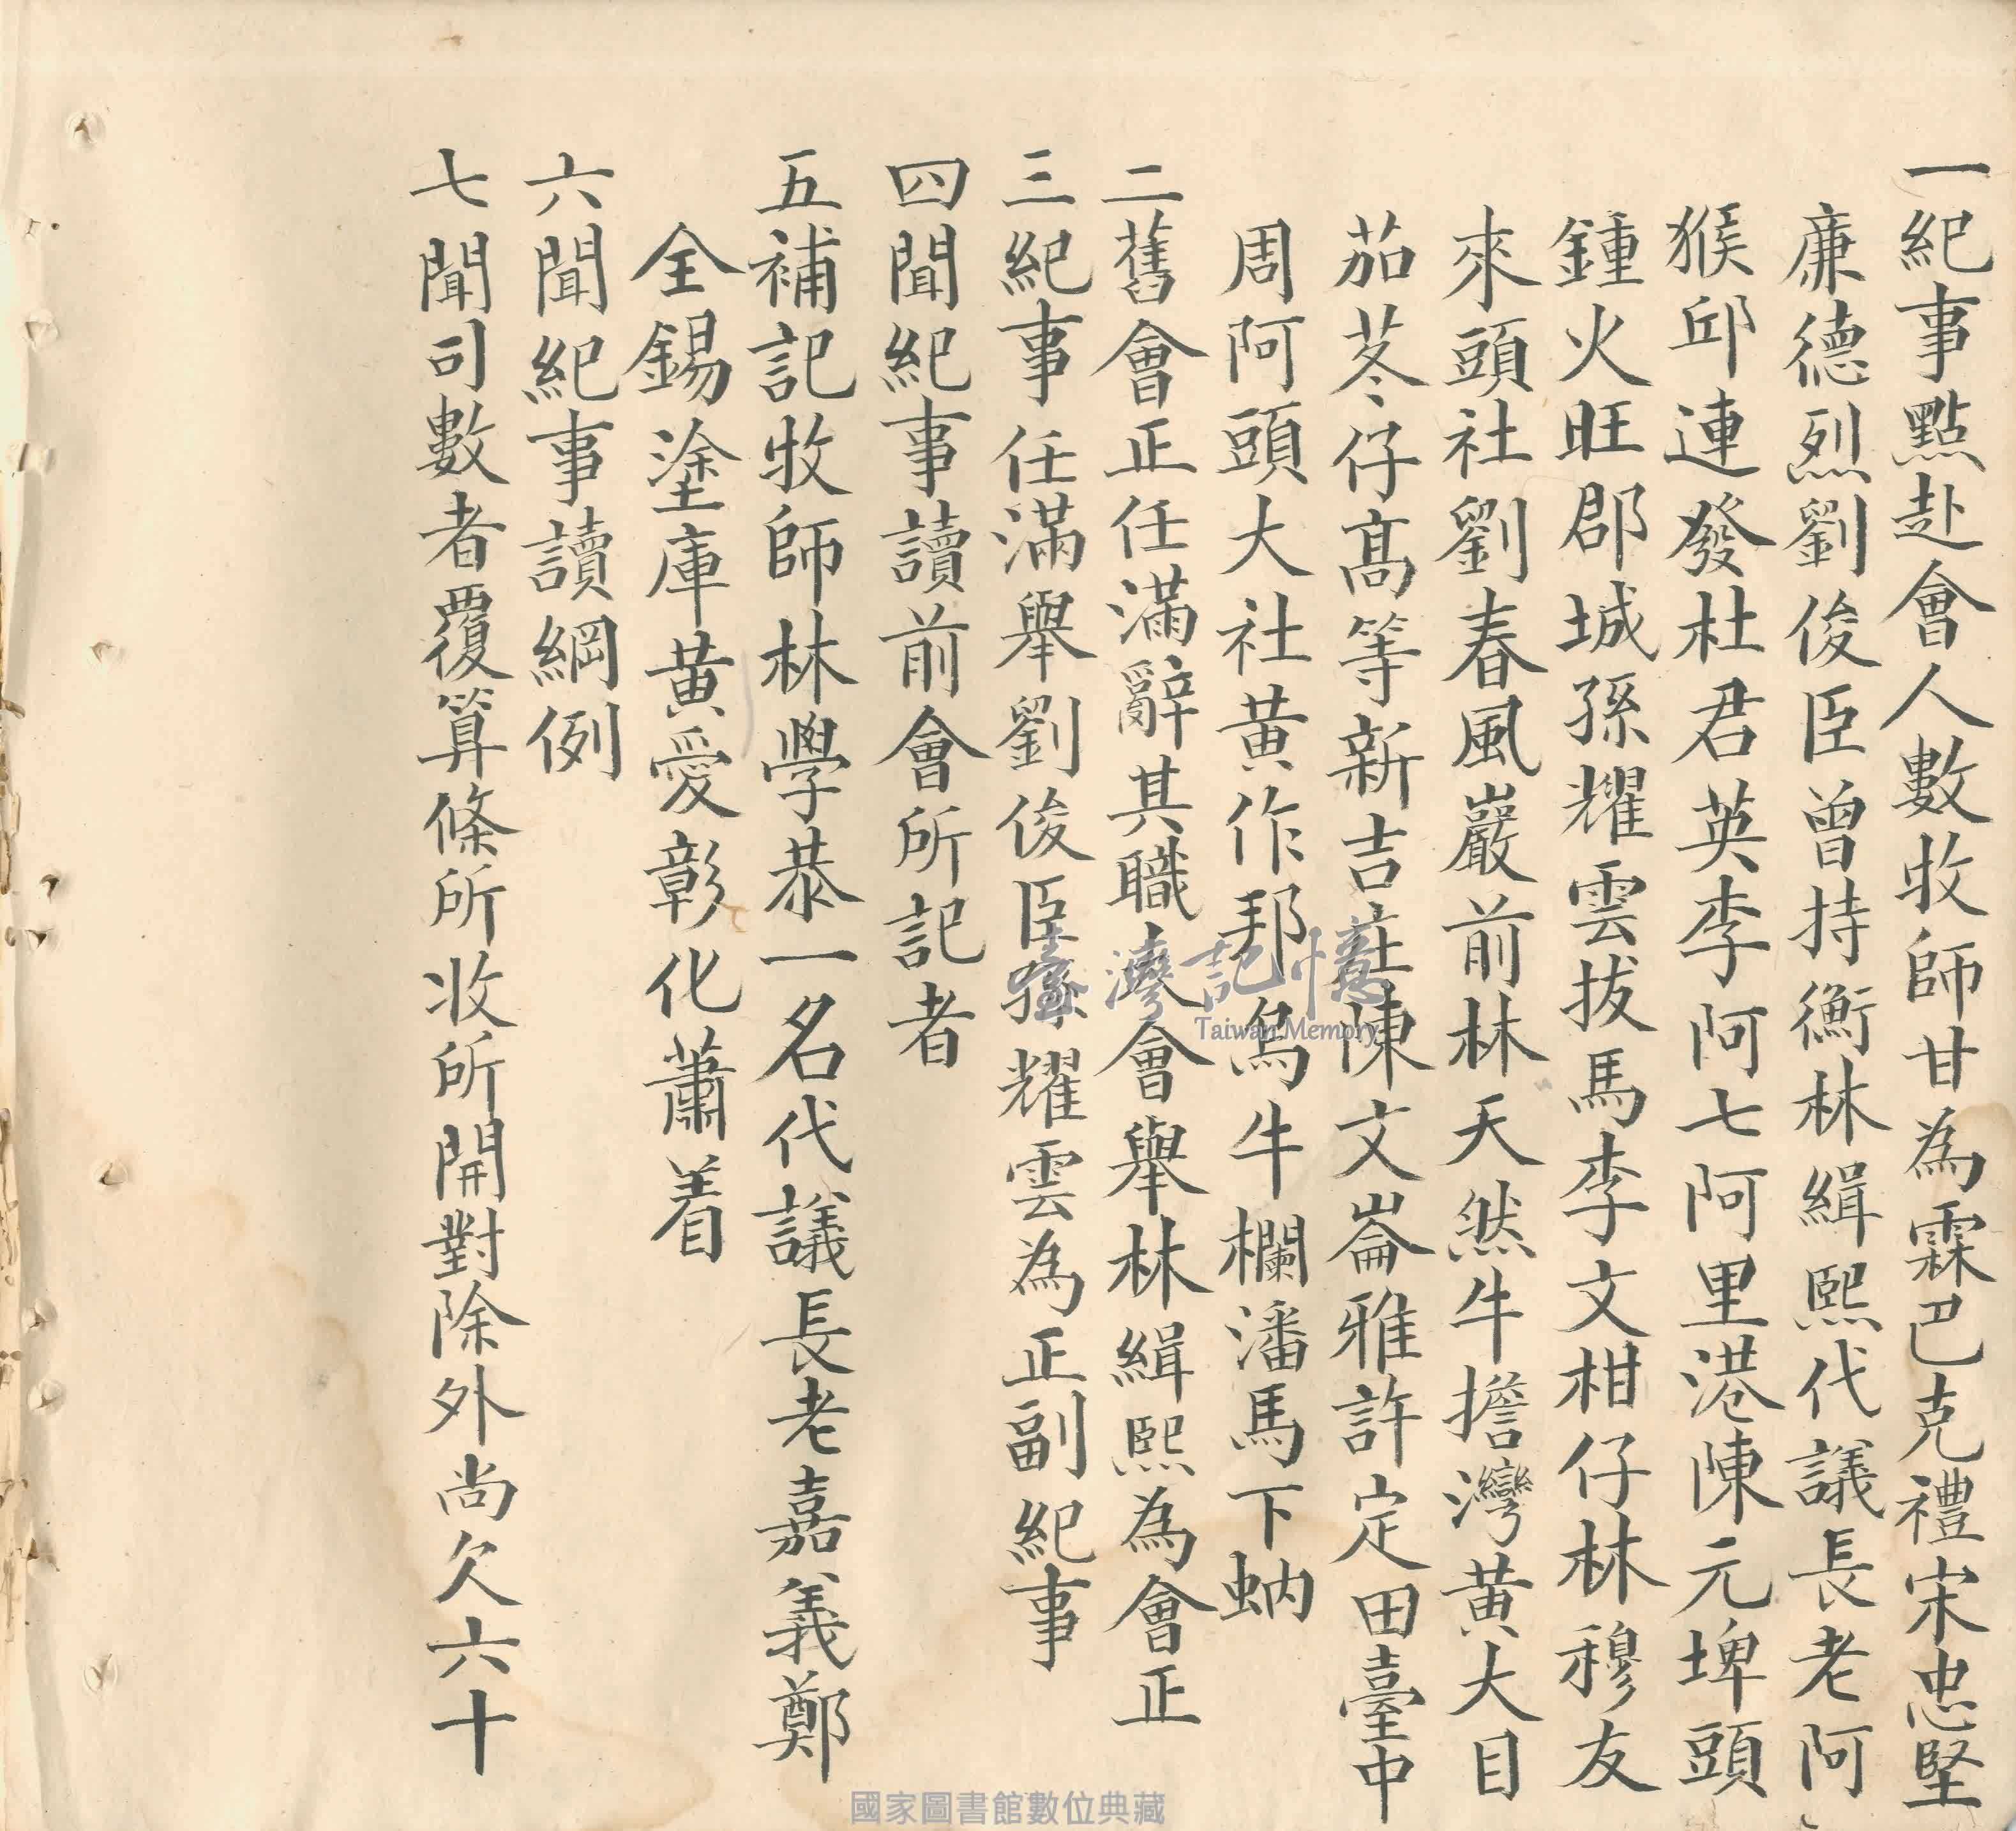 一紀事點赴會人數牧師甘為霖巴克禮宋忠堅
廉德烈劉俊臣曾持衡林緝熙代議長老阿
猴邱連發杜君英李阿七阿里港陳元埤頭
鍾火旺郡城孫耀雲拔馬李文柑仔林穆友
來頭社劉春風巖前林天然牛擔灣黃大目
茄苳仔高等新吉莊陳文崙雅許定田臺中
周阿頭大社黃作邦烏牛欄潘馬下蚋
二舊會正任滿辭其職大會舉林緝熙為會正
三紀事任滿舉劉俊臣孫耀雲為正副紀事
四聞紀事讀前會所記者
五補記牧師林學恭一名代議長老嘉義鄭
全錫塗庫黃愛彰化蕭着
六聞紀事讀綱例
七聞司數者覆算條所收所開對除外尚欠六十
臺灣記憶
Taiwan Memory
國家圖書館數位典藏